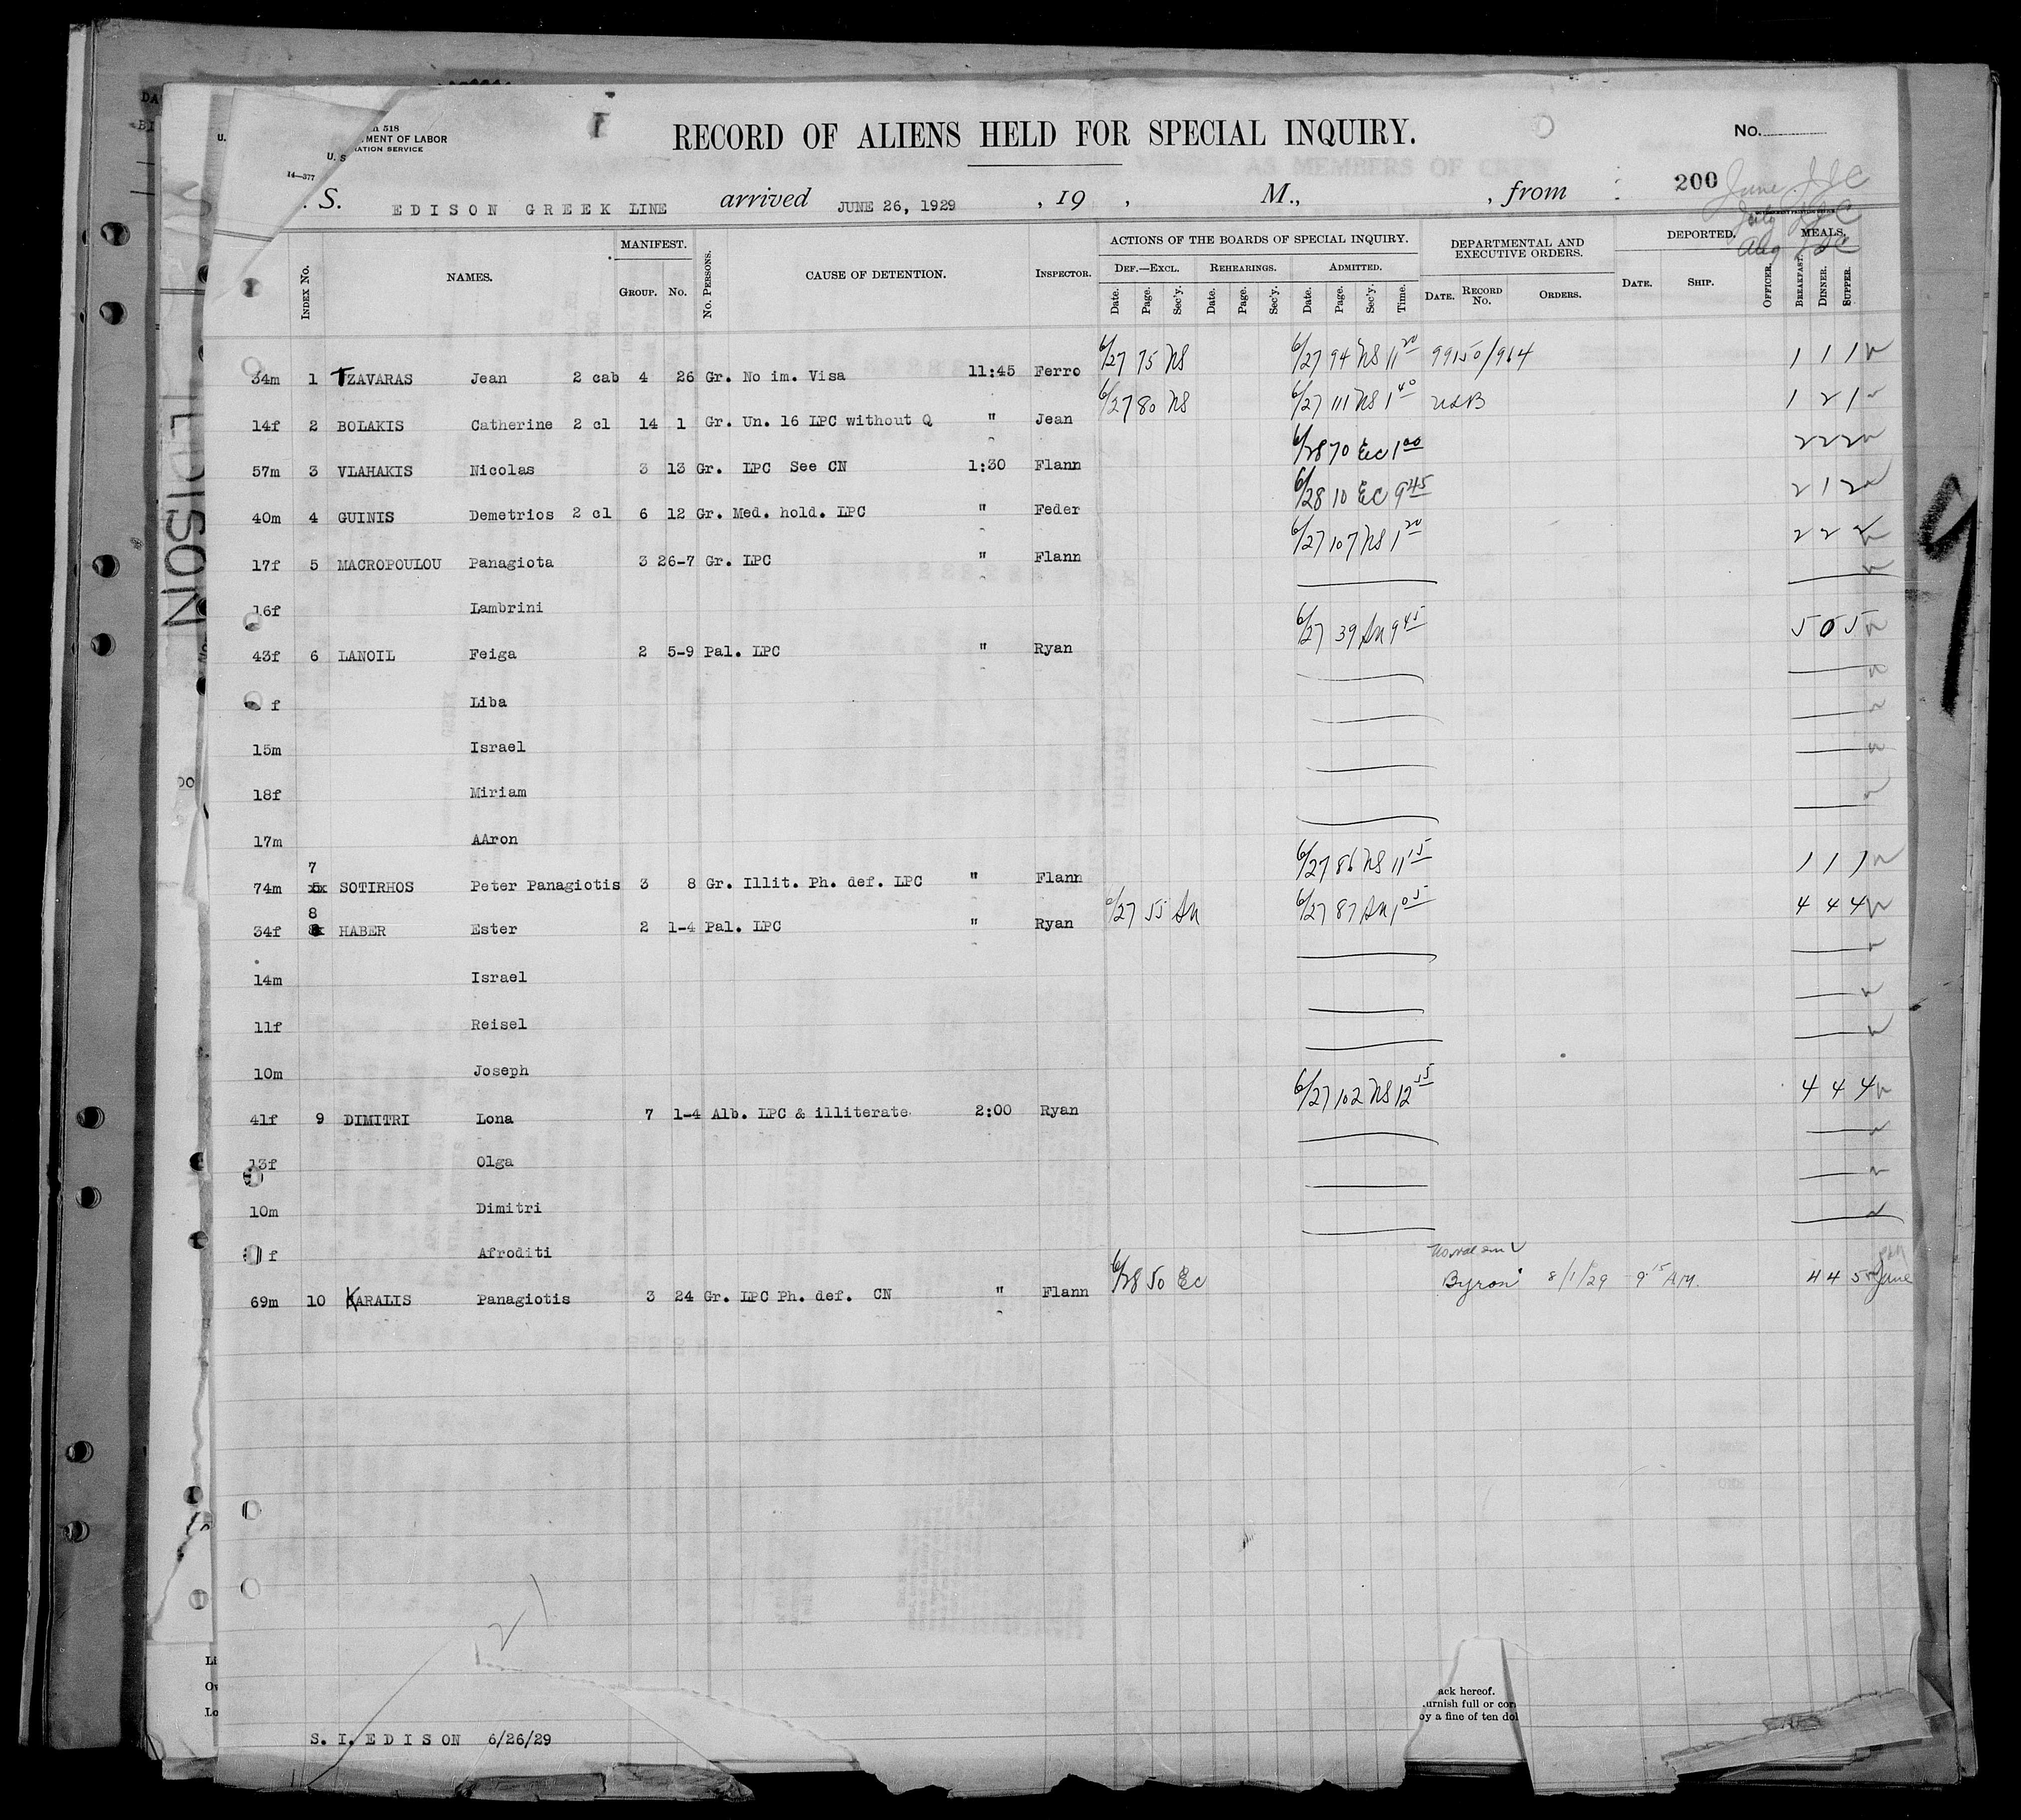 518
MENT OF LABOR
U. S. RATION SERVICE
14—377
RECORD OF ALIENS HELD FOR SPECIAL INQUIRY.
No.
200
June JJC
July JJC
Aug JJC
S. EDISON GREEK LINE arrived JUNE 26, 1929 , 19 , M., , from
INDEX No. NAMES. MANIFEST. GROUP. No. No. PERSONS. CAUSE OF DETENTION. INSPECTOR. ACTIONS OF THE BOARDS OF SPECIAL INQUIRY. DEPARTMENTAL AND EXECUTIVE ORDERS. DEPORTED. MEALS.
DEF.—EXCL. REHEARINGS. ADMITTED.
Date. Page. Sec'y. Date. Page. Sec'y. Date. Page. Sec'y. Time. DATE. RECORD No. ORDERS. DATE. SHIP. OFFICER. BREAKFAST. DINNER. SUPPER.
34m 1 TZAVARAS Jean 2 cab 4 26 Gr. No im. Visa 11:45 Ferro 6/27 75 NS 6/27 94 NS 11 20 99150/964 1 1 1
14f 2 BOLAKIS Catherine 2 cl 14 1 Gr. Un. 16 LPC without Q " Jean 6/27 80 NS 6/27 111 NS 1 40 1 2 1
57m 3 VLAHAKIS Nicolas 3 13 Gr. LPC See CN 1:30 Flann 6/28 70 EC 1 00 2 2 2
40m 4 GUINIS Demetrios 2 cl 6 12 Gr. Med. hold. LPC " Feder 6/28 10 EC 9 45 2 1 2
17f 5 MACROPOULOU Panagiota 3 26-7 Gr. LPC " Flann 6/27 107 NS 1 20 2 2 2
16f Lambrini
43f 6 LANOIL Feiga 2 5-9 Pal. LPC " Ryan 6/27 39 9 45 5 0 5
f Liba
15m Israel
18f Miriam
17m AAron
74m 7 SOTIRHOS Peter Panagiotis 3 8 Gr. Illit. Ph. def. LPC " Flann 6/27 86 NS 11 15 1 1 1
34f 8 HABER Ester 2 1-4 Pal. LPC " Ryan 6/27 55 6/27 87 1 05 4 4 4
14m Israel
11f Reisel
10m Joseph
41f 9 DIMITRI Lona 7 1-4 Alb. LPC & illiterate 2:00 Ryan 6/27 102 NS 12 55 4 4 4
13f Olga
10m Dimitri
f Afroditi
69m 10 KARALIS Panagiotis 3 24 Gr. LPC Ph. def. CN " Flann 6/28 50 EC Byron 8/1/29 9 15 A.M. 4 4 5 June
EDISON
9
ack hereof.
urnish full or cor
by a fine of ten dol
S. I. EDISON 6/26/29